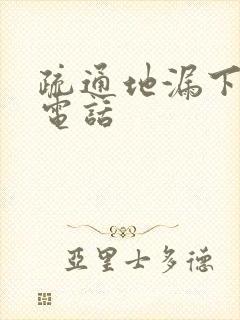 疏通地漏下
電話
亞里士多德